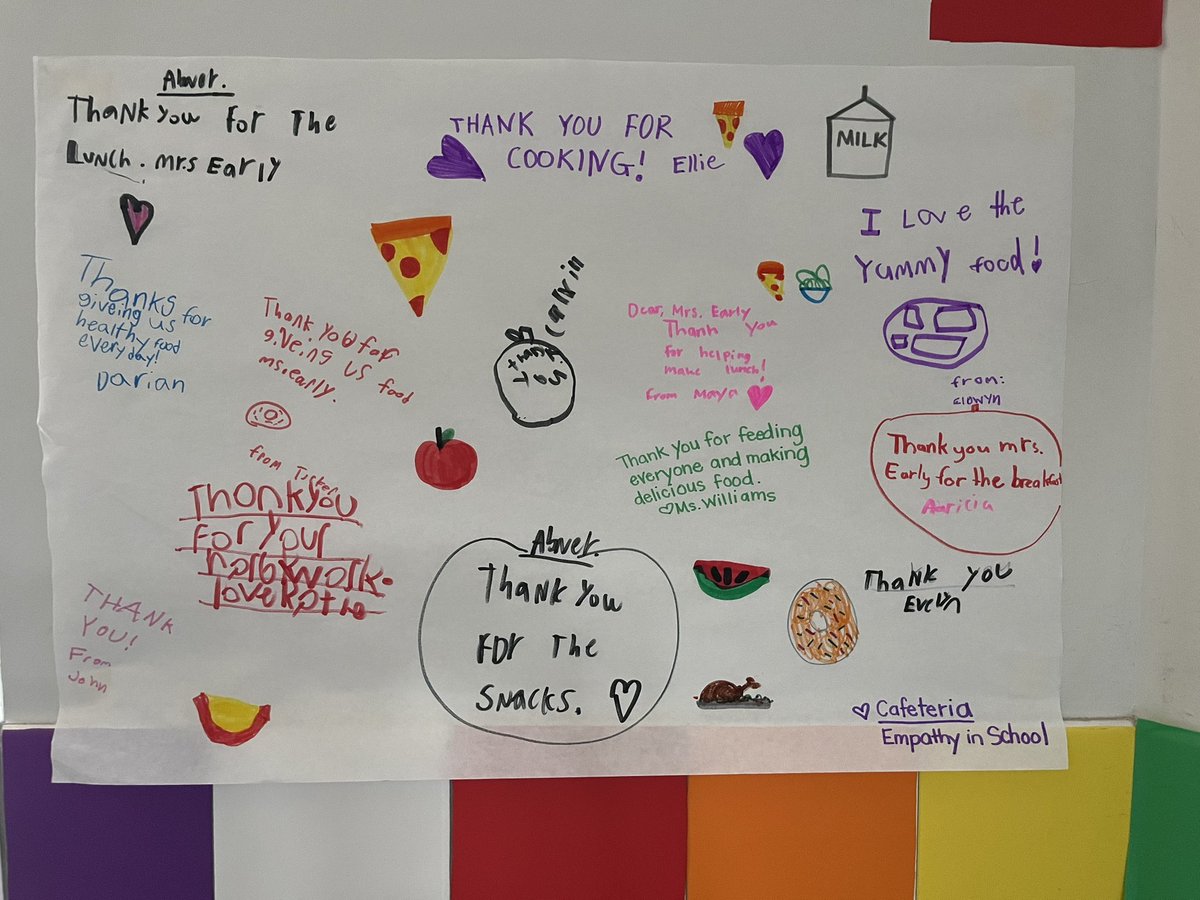 Abner.
Thank you for the
Lunch. mrs Early
THANK YOU FOR
COOKING! Ellie
MILK
I Love the
Yummy food!
from:
Elowyn
Thanks for
giveing us
healthy food
everyday!
Darian
Thank you for
giveing us food
ms.early.
from
Calvin
thank
you
Dear, Mrs. Early
Thank you
for helping
make lunch!
From Maya
Thank you for feeding
everyone and making
delicious food.
Ms. Williams
Thank you mrs.
Early for the breakfast
Aaricia
Thonkyou
for your
love Katie
THANK
YOU!
From
John
Abner.
Thank you
For The
Snacks.
Thank you
Evelyn
Cafeteria
Empathy in School